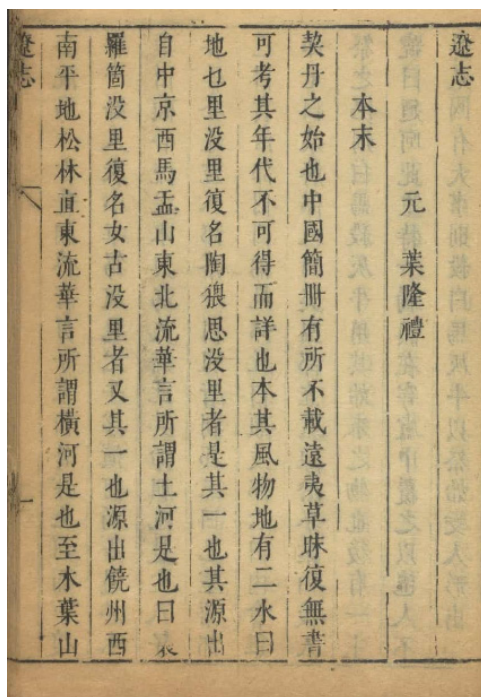 遼志
元 葉隆禮
本末
契丹之始也中國簡冊有所不載遠夷草昧復無書
可考其年代不可得而詳也本其風物地有二水曰
地乜里没里復名陶猥思没里者是其一也其源出
自中京西馬盂山東北流華言所謂土河是也曰裊
羅箇没里復名女古没里者又其一也源出饒州西
南平地松林直東流華言所謂橫河是也至木葉山
遼志
一